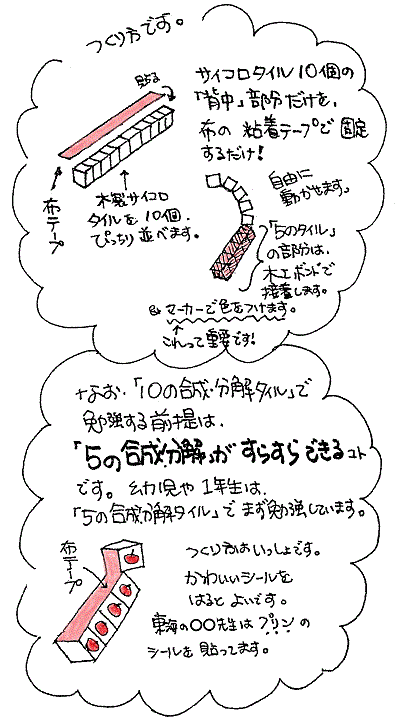 つくり方です。
貼る
サイコロタイル10個の
「背中」部分だけを、
布の粘着テープで固定
するだけ!
布テープ
木製サイコロ
タイルを10個、
ぴっちり並べます。
自由に
動かせます。
「5のタイル」
の部分は、
木工ボンドで
接着します。
マーカーで色をつけます。
これって重要です!
なお、「10の合成・分解タイル」で
勉強する前提は、
「5の合成・分解」が すらすらできるコト
です。幼児や1年生は、
「5の合成・分解タイル」でまず勉強しています。
布テープ
つくり方はいっしょです。
かわいいシールを
はるとよいです。
東海の〇〇先生はプリンの
シールを貼ってます。